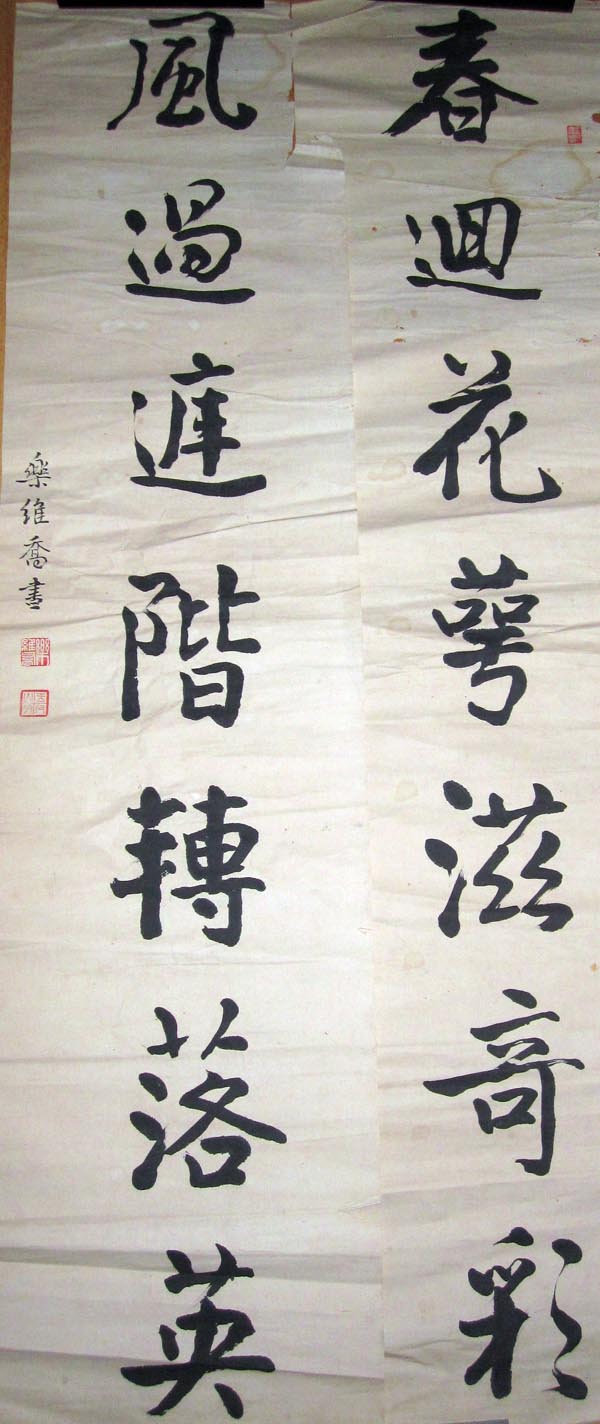 春迴花萼滋竒彩
風過庭階轉落英
樂維喬書